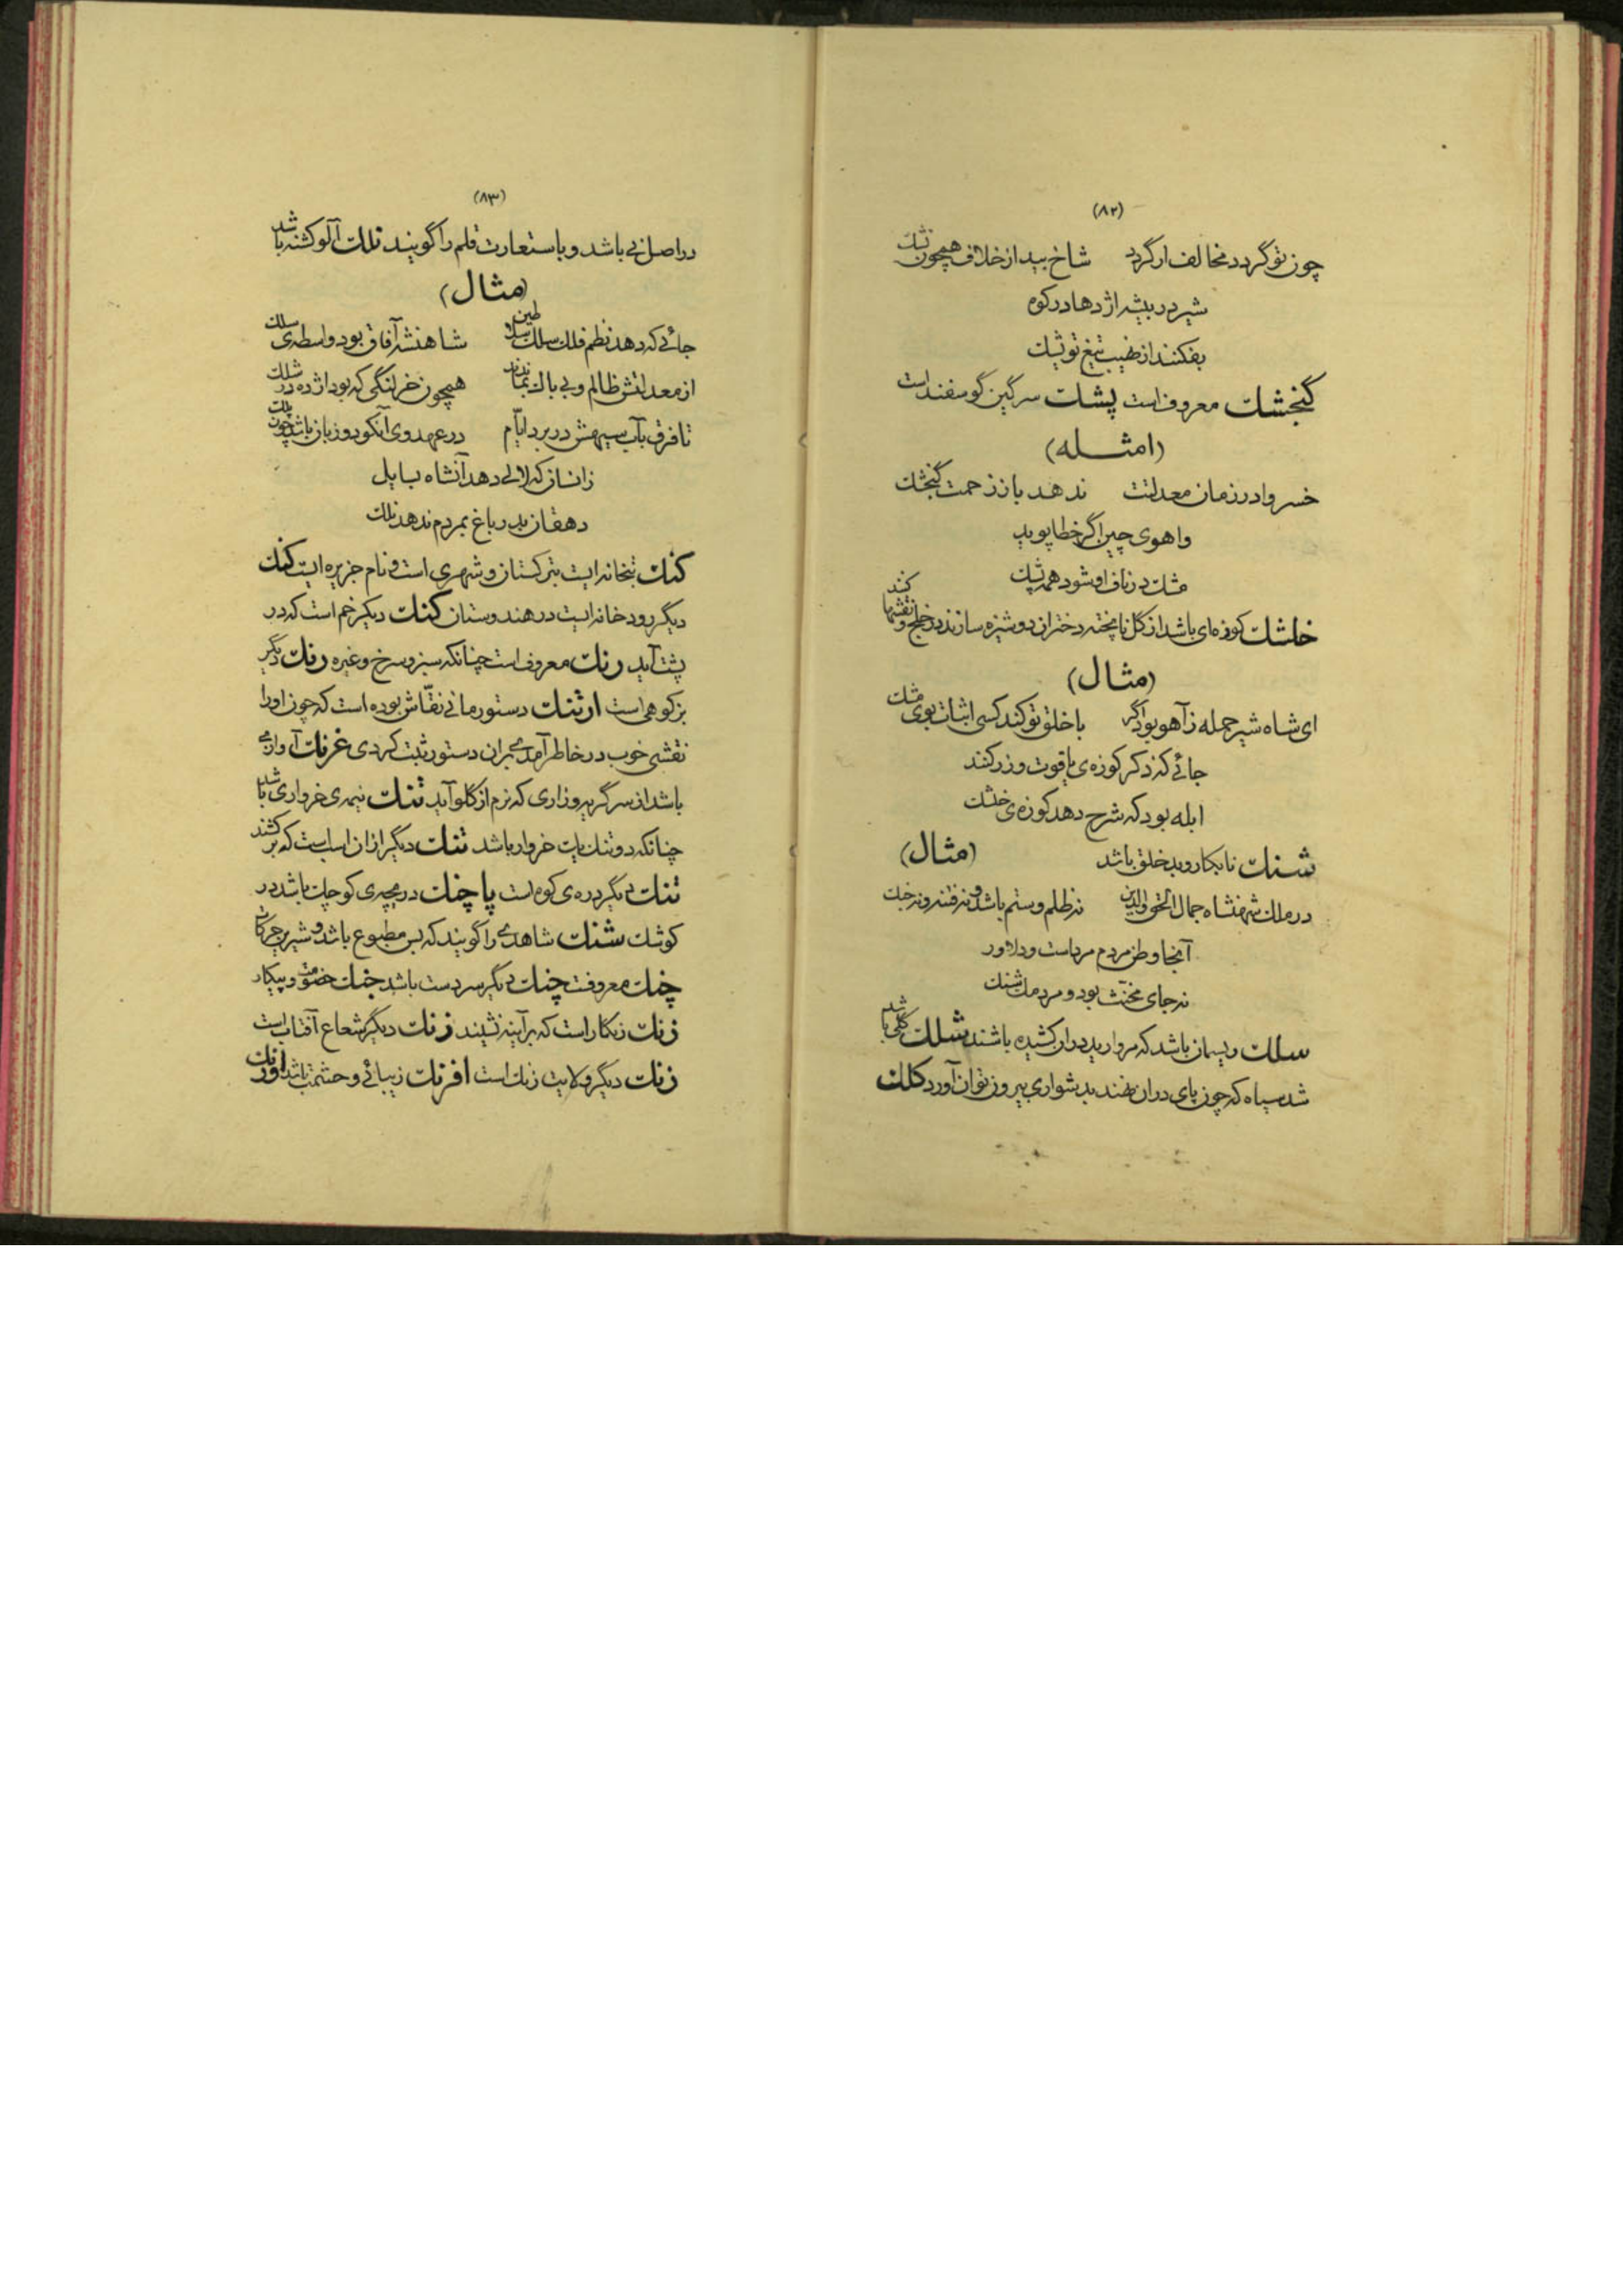 (۸۲)
چون تو گردد مخالف ار گردد شاخ بید از خلاف همچون نشک
شیر در بیشه اژدها در کوه
بفکنند از نهیب تیغ تو پشک
گنجشک معروف است پشک سرگین گوسفند است
(امثله)
خسروا در زمان معدلتت ندهد باز زحمت گنجشک
واهوی چین اگر خطا پوید
مشک در ناف او شود همه پشک
خلشک کوزه‌ای باشد از گل نا پخته دختران دوشیزه سازند در خلج و نقشها کنند
(مثال)
ای شاه شیر حمله ز آهو بود اگر با خلق تو کند کسی اثبات بوی مشک
جائی که ذکر کوزه‌ی یاقوت و زر کنند
ابله بود که شرح دهد کوزه‌ی خلشک
شنک نابکار و بد خلق باشد (مثال)
در ملک شهنشاه جمال الحق والدین نه ظلم و ستم باشد و نه فتنه و نه جنک
آنجا وطن مردم مرداست و دلاور
نه جای مخنّث بود و مردمک شنک
سلک ریسمان باشد که مروارید در ان کشیده باشند شلک گلی باشد
شد سیاه که چون پای در ان نهند بدشواری بیرون توان آورد کلک
(۸۳)
در اصل نی باشد و باستعارت قلم را گویند نلک آلو کشته باشد
(مثال)
جائی که دهد نظم فلک سلک سلاطین شاهنشه آفاق بود واسطه‌ی سلک
از معدلتش ظالم و بی باک نماندند همچون خر لنگی که بود اژده در شلک
تا فرق بآب سیهش در برد ایّام در عهد وی آنکو دو زبان باشد چون کلک
زانسان که لالی دهد آنشاه بسایل
دهقان بدر باغ بمردم ندهد نلک
کنک بتخانه ایست بترکستان و شهری است و نام جزیره ایست کنک
دیگر رودخانه ایست در هندوستان کنک دیگر خم است که در
پشت آید رنک معروف است چنانکه سبز و سرخ و غیره رنک دیگر
بز کوهی است ارتنک دستور مانی نقّاش بوده است که چون او را
نقشی خوب در خاطر آمدی بران دستور ثبت کردی غرنک آوازی
باشد از سر گریه و زاری که نرم از گلو آید تنک نیمه‌ی خرواری باشد
چنانکه دو تنک یک خروار باشد تنک دیگر ازان اسب است که بر کشند
تنک دیگر دره‌ی کوه است پاچنک دریچه‌ی کوچک باشد در
کوشک شنک شاهدی را گویند که بس مطبوع باشد و شیرین حرکات
چنک معروفست چنک دیگر سر دست باشد جنک خصومت و پیکار
زنک زنگار است که بر آینه نشیند زنک دیگر شعاع آفتاب است
زنک دیگر ولایت زنک است افرنک زیبائی و حشمت باشد اورنک